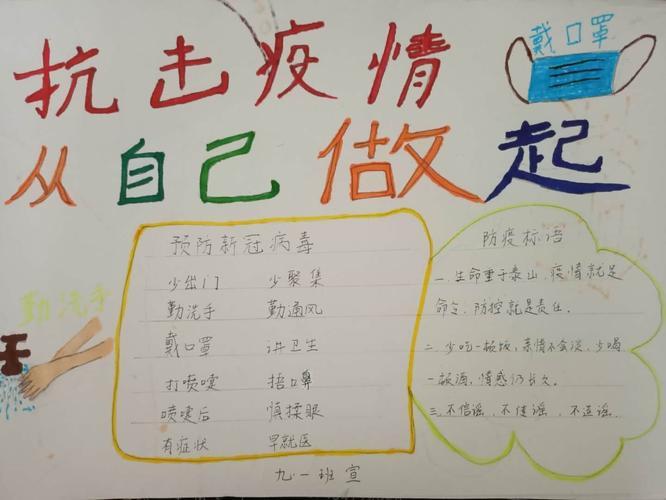 抗击疫情
戴口罩
从自己做起
勤洗手
预防新冠病毒
少出门 少聚集
勤洗手 勤通风
戴口罩 讲卫生
打喷嚏 捂口鼻
喷嚏后 慎揉眼
有症状 早就医
防疫标语
一.生命重于泰山,疫情就是
命令,防控就是责任。
二.少吃一顿饭,亲情不会淡,少喝
一顿酒,情感仍长久。
三.不信谣,不传谣,不造谣.
九.一班宣